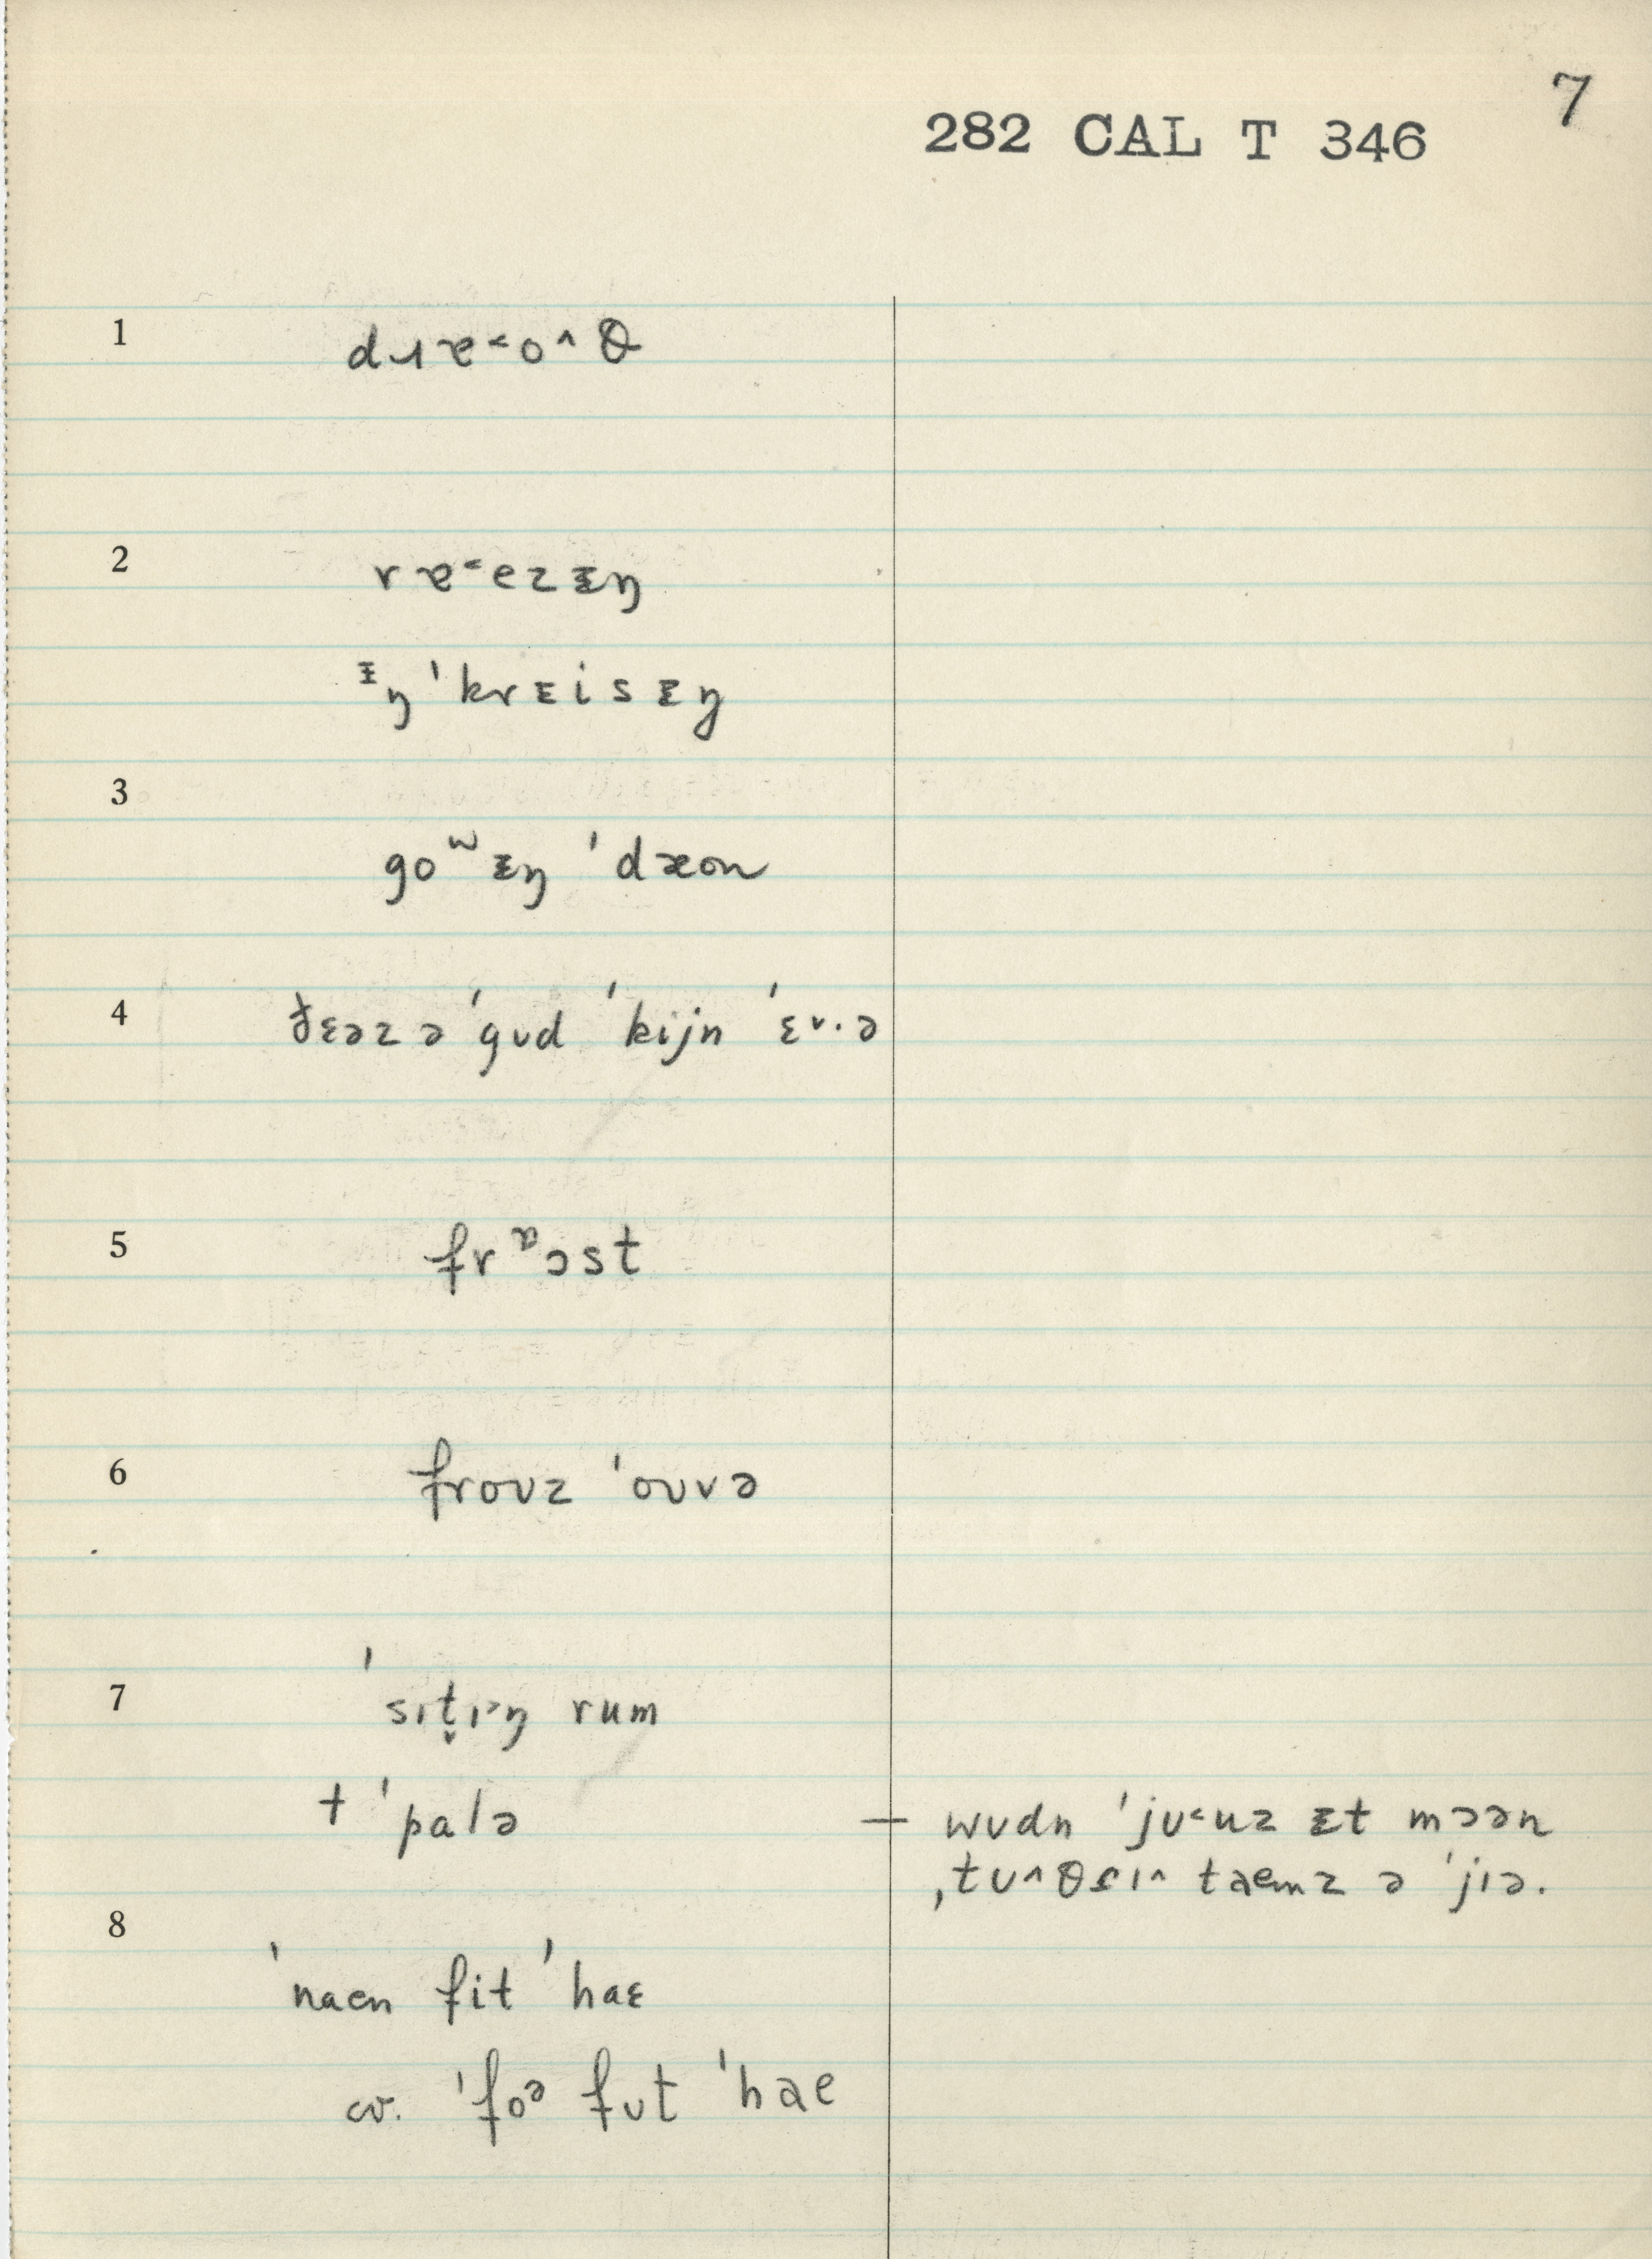 7
282 CAL T 346
1 dɹɐ˂oʌθ
2 rɐ˂ezɪ̵ŋ
ɪ̵ŋ ˈkrɛisɪ̵ŋ
3
goʷɪ̵ŋ ˈdæon
4 ðɛəz ə ˈgʊd ˈkijn ˈɛv·ə
5 frᶛɔst
6 froʊz ˈoʊvə
7 ˈsɪt̬ɪ˃ŋ rum
† ˈpalə — wʊdn ˈjʊ˂uz ɪ̵t mɔən
ˌtʊʌθrɪʌ taemz ə ˈjɪə.
8
ˈnaen fit ˈhaɛ
cv. ˈfoᵊ fʊt ˈhae